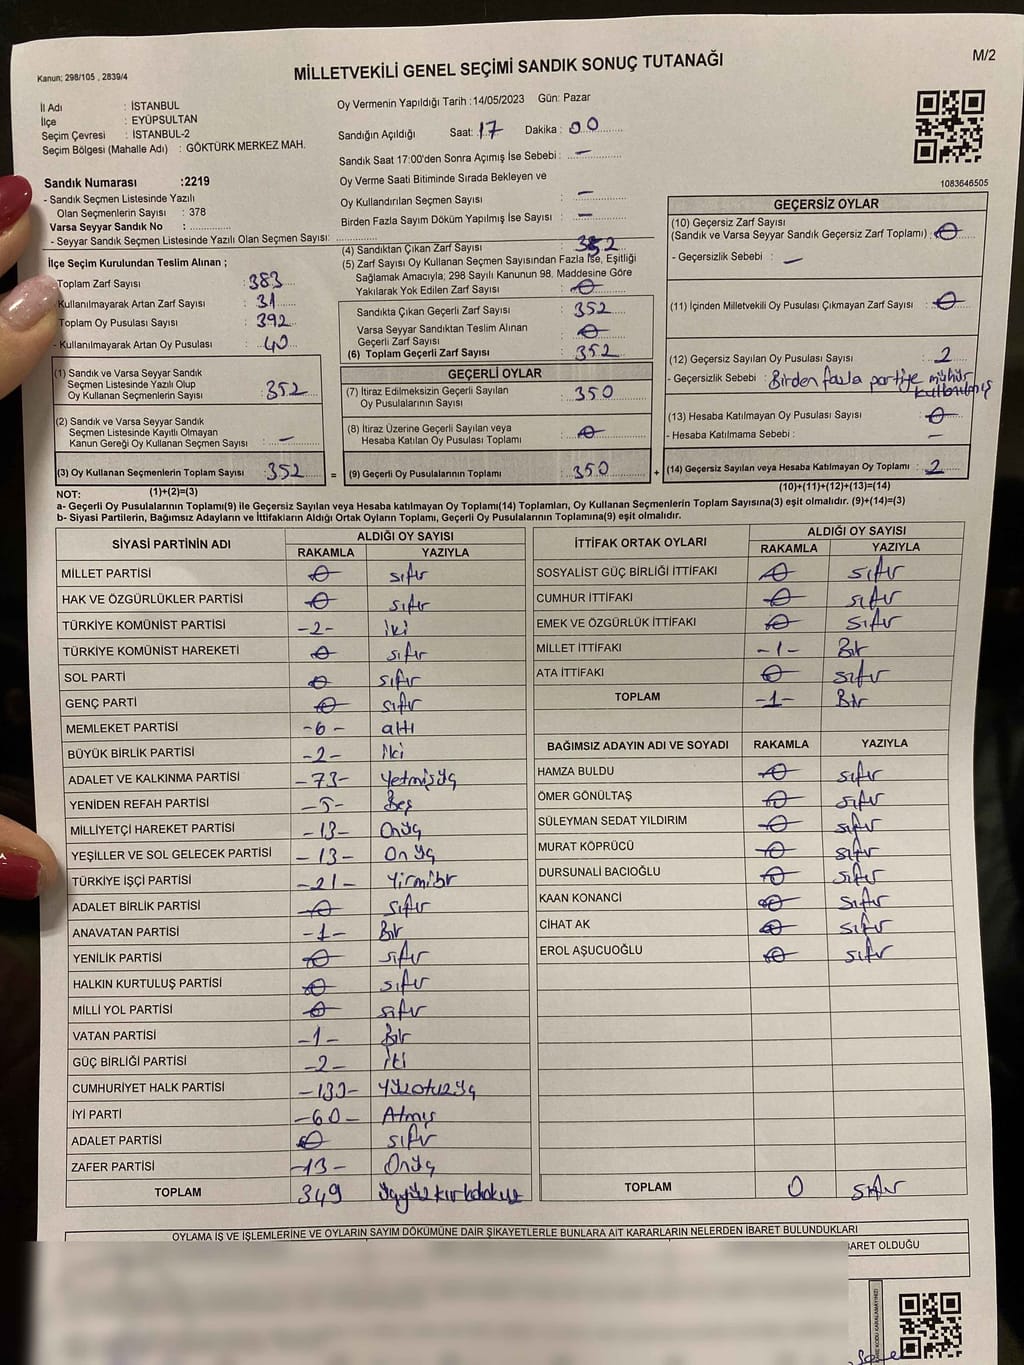 Kanun; 298/105 , 2839/4
MİLLETVEKİLİ GENEL SEÇİMİ SANDIK SONUÇ TUTANAĞI
M/2
İl Adı : İSTANBUL
İlçe : EYÜPSULTAN
Seçim Çevresi : İSTANBUL-2
Seçim Bölgesi (Mahalle Adı) : GÖKTÜRK MERKEZ MAH.
Oy Vermenin Yapıldığı Tarih :14/05/2023 Gün: Pazar
Sandığın Açıldığı Saat: 17 Dakika : 00
Sandık Saat 17:00'den Sonra Açmış İse Sebebi : —
Oy Verme Saati Bitiminde Sırada Bekleyen ve
Oy Kullandırılan Seçmen Sayısı : —
Birden Fazla Sayım Döküm Yapılmış İse Sayısı : —
1083646505
Sandık Numarası :2219
- Sandık Seçmen Listesinde Yazılı
Olan Seçmenlerin Sayısı : 378
Varsa Seyyar Sandık No :
- Seyyar Sandık Seçmen Listesinde Yazılı Olan Seçmen Sayısı:
İlçe Seçim Kurulundan Teslim Alınan ;
Toplam Zarf Sayısı : 383
Kullanılmayarak Artan Zarf Sayısı : 31
Toplam Oy Pusulası Sayısı : 392
- Kullanılmayarak Artan Oy Pusulası : 40
(1) Sandık ve Varsa Seyyar Sandık
Seçmen Listesinde Yazılı Olup
Oy Kullanan Seçmenlerin Sayısı : 352
(2) Sandık ve Varsa Seyyar Sandık
Seçmen Listesinde Kayıtlı Olmayan
Kanun Gereği Oy Kullanan Seçmen Sayısı : —
(3) Oy Kullanan Seçmenlerin Toplam Sayısı : 352
(1)+(2)=(3)
(4) Sandıktan Çıkan Zarf Sayısı : 352
(5) Zarf Sayısı Oy Kullanan Seçmen Sayısından Fazla İse, Eşitliği
Sağlamak Amacıyla; 298 Sayılı Kanunun 98. Maddesine Göre
Yakılarak Yok Edilen Zarf Sayısı : 0
Sandıkta Çıkan Geçerli Zarf Sayısı : 352
Varsa Seyyar Sandıktan Teslim Alınan
Geçerli Zarf Sayısı : 0
(6) Toplam Geçerli Zarf Sayısı : 352
GEÇERLİ OYLAR
(7) İtiraz Edilmeksizin Geçerli Sayılan
Oy Pusulalarının Sayısı : 350
(8) İtiraz Üzerine Geçerli Sayılan veya
Hesaba Katılan Oy Pusulası Toplamı : 0
= (9) Geçerli Oy Pusulalarının Toplamı : 350
GEÇERSİZ OYLAR
(10) Geçersiz Zarf Sayısı
(Sandık ve Varsa Seyyar Sandık Geçersiz Zarf Toplamı) : 0
- Geçersizlik Sebebi : —
(11) İçinden Milletvekili Oy Pusulası Çıkmayan Zarf Sayısı : 0
(12) Geçersiz Sayılan Oy Pusulası Sayısı : 2
- Geçersizlik Sebebi : Birden fazla partiye mühür
kullanılmış
(13) Hesaba Katılmayan Oy Pusulası Sayısı : 0
- Hesaba Katılmama Sebebi : —
+ (14) Geçersiz Sayılan veya Hesaba Katılmayan Oy Toplamı : 2
(10)+(11)+(12)+(13)=(14)
NOT:
a- Geçerli Oy Pusulalarının Toplamı(9) ile Geçersiz Sayılan veya Hesaba katılmayan Oy Toplamı(14) Toplamları, Oy Kullanan Seçmenlerin Toplam Sayısına(3) eşit olmalıdır. (9)+(14)=(3)
b- Siyasi Partilerin, Bağımsız Adayların ve İttifakların Aldığı Ortak Oyların Toplamı, Geçerli Oy Pusulalarının Toplamına(9) eşit olmalıdır.
SİYASİ PARTİNİN ADI ALDIĞI OY SAYISI
RAKAMLA YAZIYLA
MİLLET PARTİSİ 0 sıfır
HAK VE ÖZGÜRLÜKLER PARTİSİ 0 sıfır
TÜRKİYE KOMÜNİST PARTİSİ -2- iki
TÜRKİYE KOMÜNİST HAREKETİ 0 sıfır
SOL PARTİ 0 sıfır
GENÇ PARTİ 0 sıfır
MEMLEKET PARTİSİ -6- altı
BÜYÜK BİRLİK PARTİSİ -2- iki
ADALET VE KALKINMA PARTİSİ -73- Yetmişüç
YENİDEN REFAH PARTİSİ -5- Beş
MİLLİYETÇİ HAREKET PARTİSİ -13- Onüç
YEŞİLLER VE SOL GELECEK PARTİSİ -13- Onüç
TÜRKİYE İŞÇİ PARTİSİ -21- Yirmibir
ADALET BİRLİK PARTİSİ 0 sıfır
ANAVATAN PARTİSİ -1- Bir
YENİLİK PARTİSİ 0 sıfır
HALKIN KURTULUŞ PARTİSİ 0 sıfır
MİLLİ YOL PARTİSİ 0 sıfır
VATAN PARTİSİ -1- Bir
GÜÇ BİRLİĞİ PARTİSİ -2- iki
CUMHURİYET HALK PARTİSİ -133- Yüzotuzüç
İYİ PARTİ -60- Atmış
ADALET PARTİSİ 0 sıfır
ZAFER PARTİSİ -13- Onüç
TOPLAM 349 üçyüzkırkdokuz
İTTİFAK ORTAK OYLARI ALDIĞI OY SAYISI
RAKAMLA YAZIYLA
SOSYALİST GÜÇ BİRLİĞİ İTTİFAKI 0 sıfır
CUMHUR İTTİFAKI 0 sıfır
EMEK VE ÖZGÜRLÜK İTTİFAKI 0 sıfır
MİLLET İTTİFAKI -1- Bir
ATA İTTİFAKI 0 sıfır
TOPLAM -1- Bir
BAĞIMSIZ ADAYIN ADI VE SOYADI RAKAMLA YAZIYLA
HAMZA BULDU 0 sıfır
ÖMER GÖNÜLTAŞ 0 sıfır
SÜLEYMAN SEDAT YILDIRIM 0 sıfır
MURAT KÖPRÜCÜ 0 sıfır
DURSUNALİ BACIOĞLU 0 sıfır
KAAN KONANCİ 0 sıfır
CİHAT AK 0 sıfır
EROL AŞUCUOĞLU 0 sıfır
TOPLAM 0 sıfır
OYLAMA İŞ VE İŞLEMLERİNE VE OYLARIN SAYIM DÖKÜMÜNE DAİR ŞİKAYETLERLE BUNLARA AİT KARARLARIN NELERDEN İBARET BULUNDUKLARI
BARET OLDUĞU